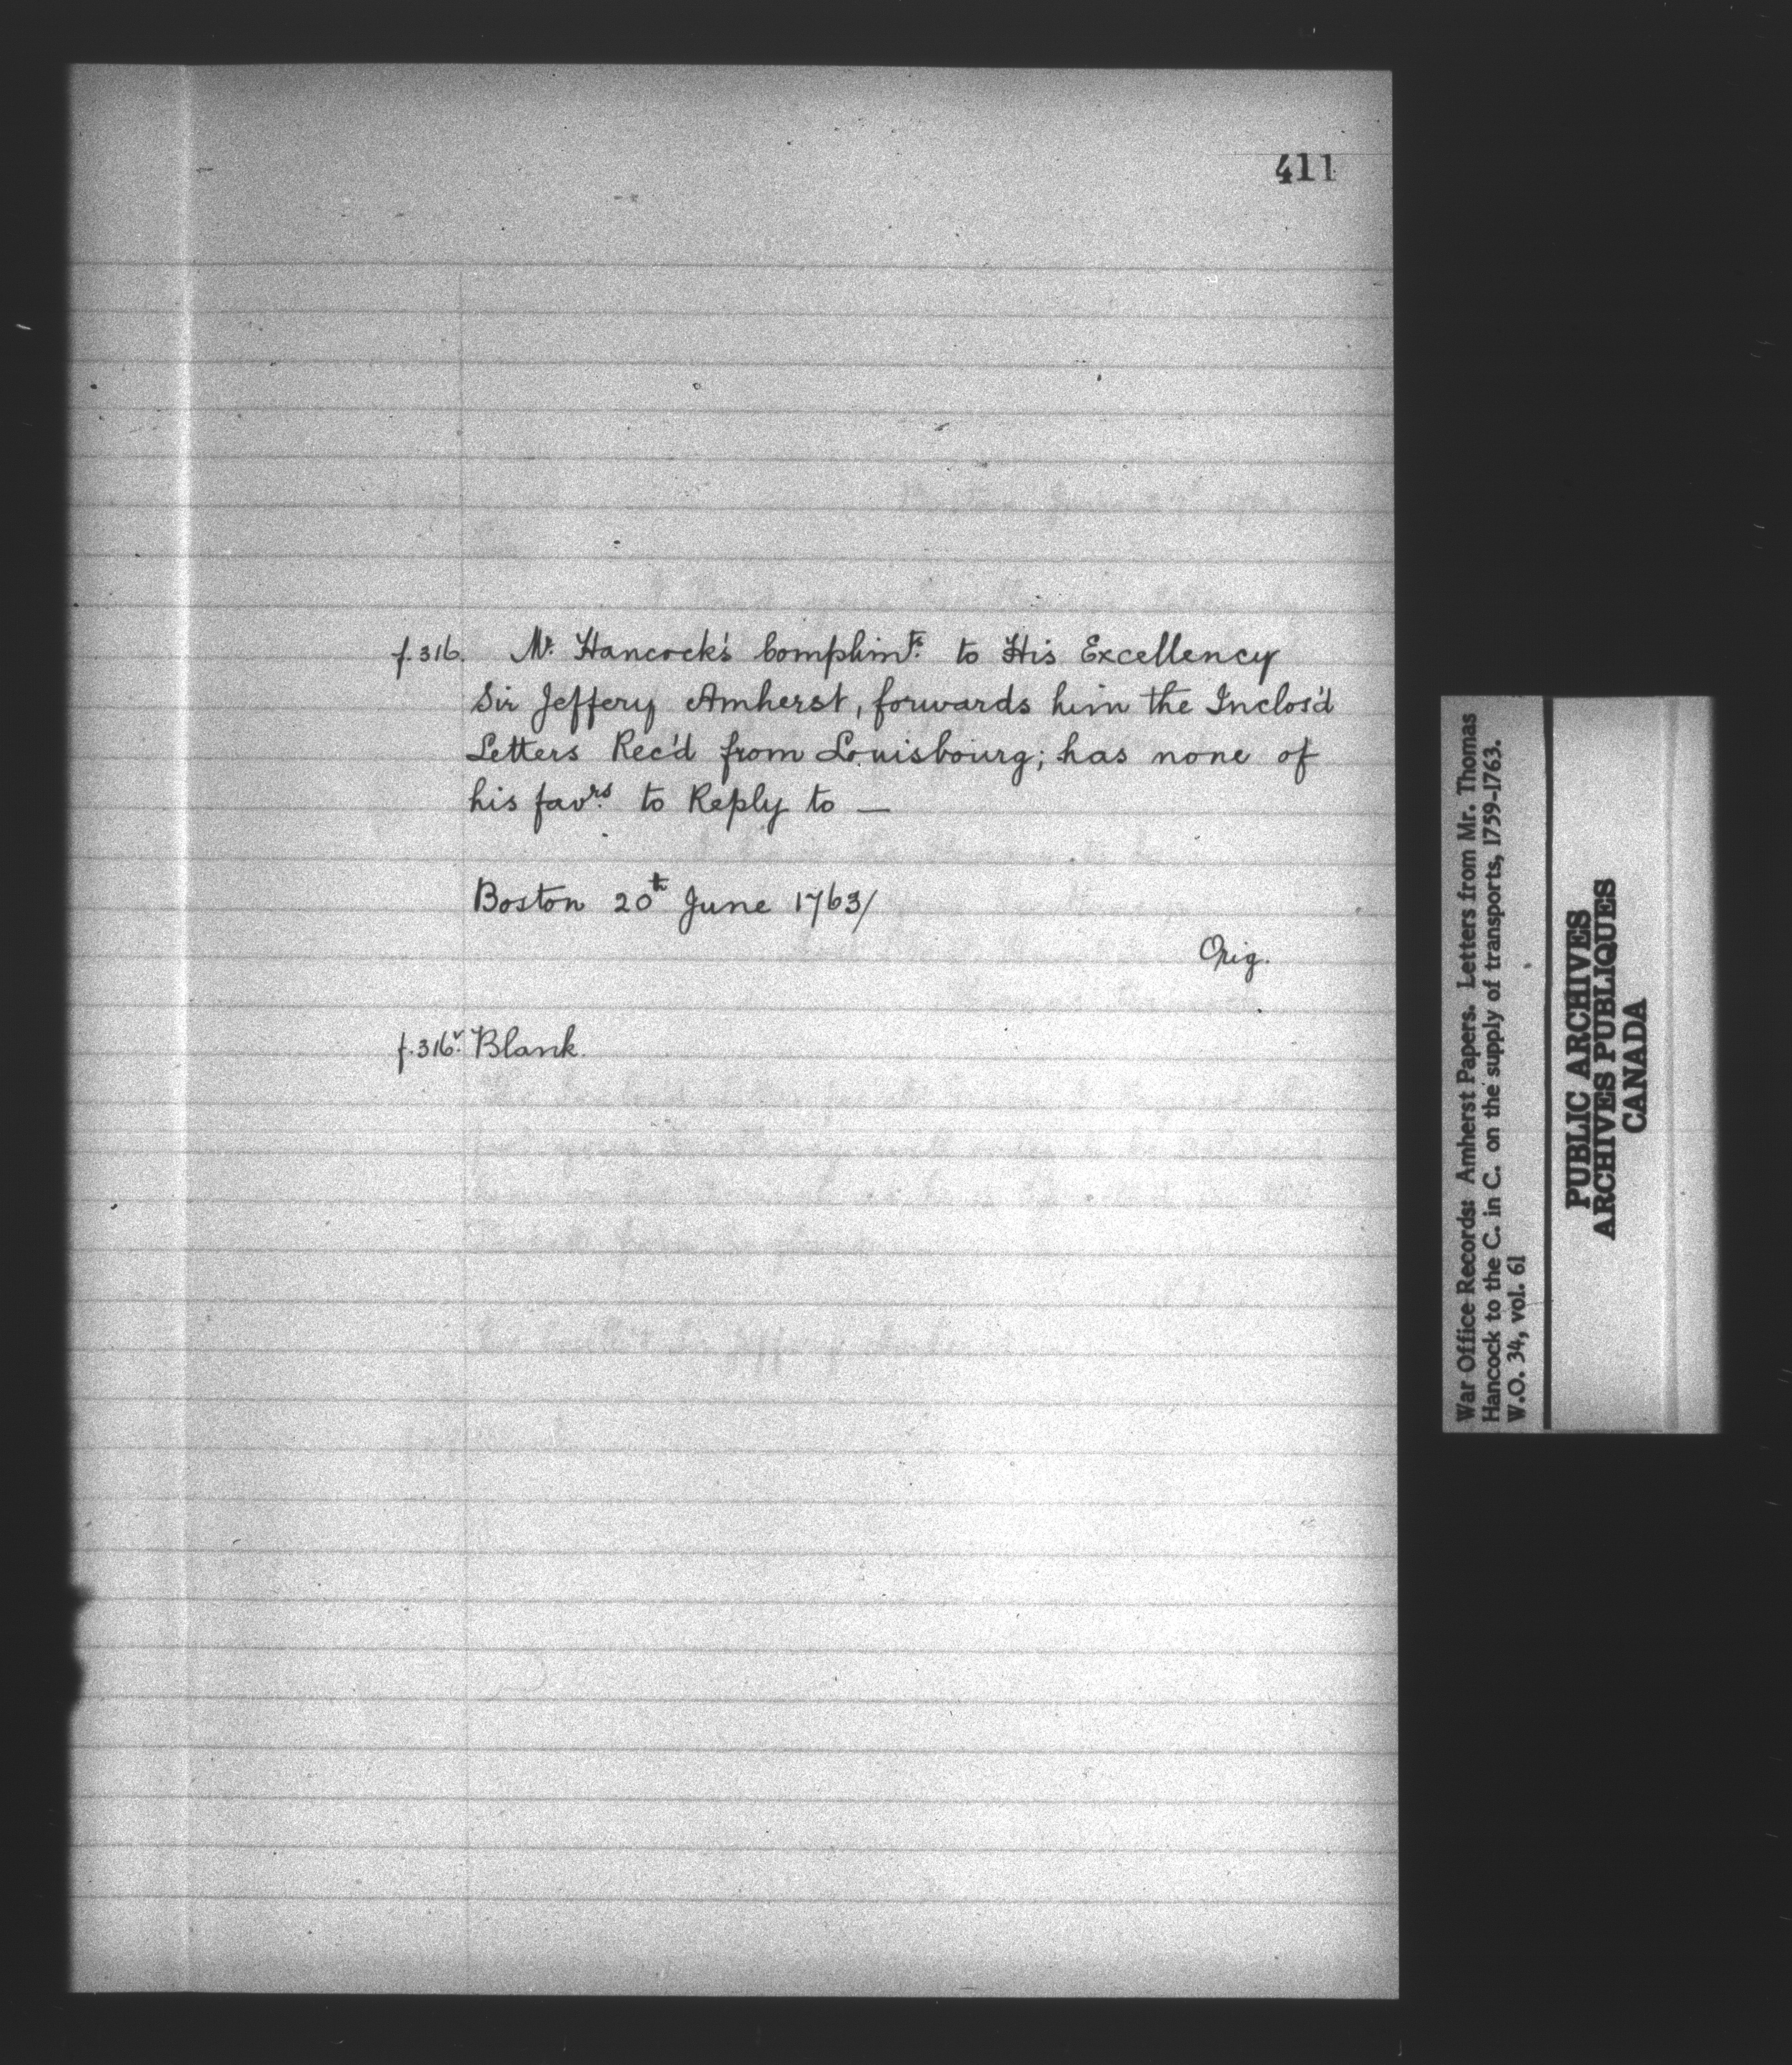 411
f.316. Mr. Hancock's Complimts. to His Excellency
Sir Jeffery Amherst, forwards him the Inclos'd
Letters Rec'd from Louisbourg; has none of
his favrs. to Reply to —
Boston 20th June 1763/
Orig.
f.316v. Blank.
War Office Records: Amherst Papers. Letters from Mr. Thomas
Hancock to the C. in C. on the supply of transports, 1759-1763.
W.O. 34, vol. 61
PUBLIC ARCHIVES
ARCHIVES PUBLIQUES
CANADA